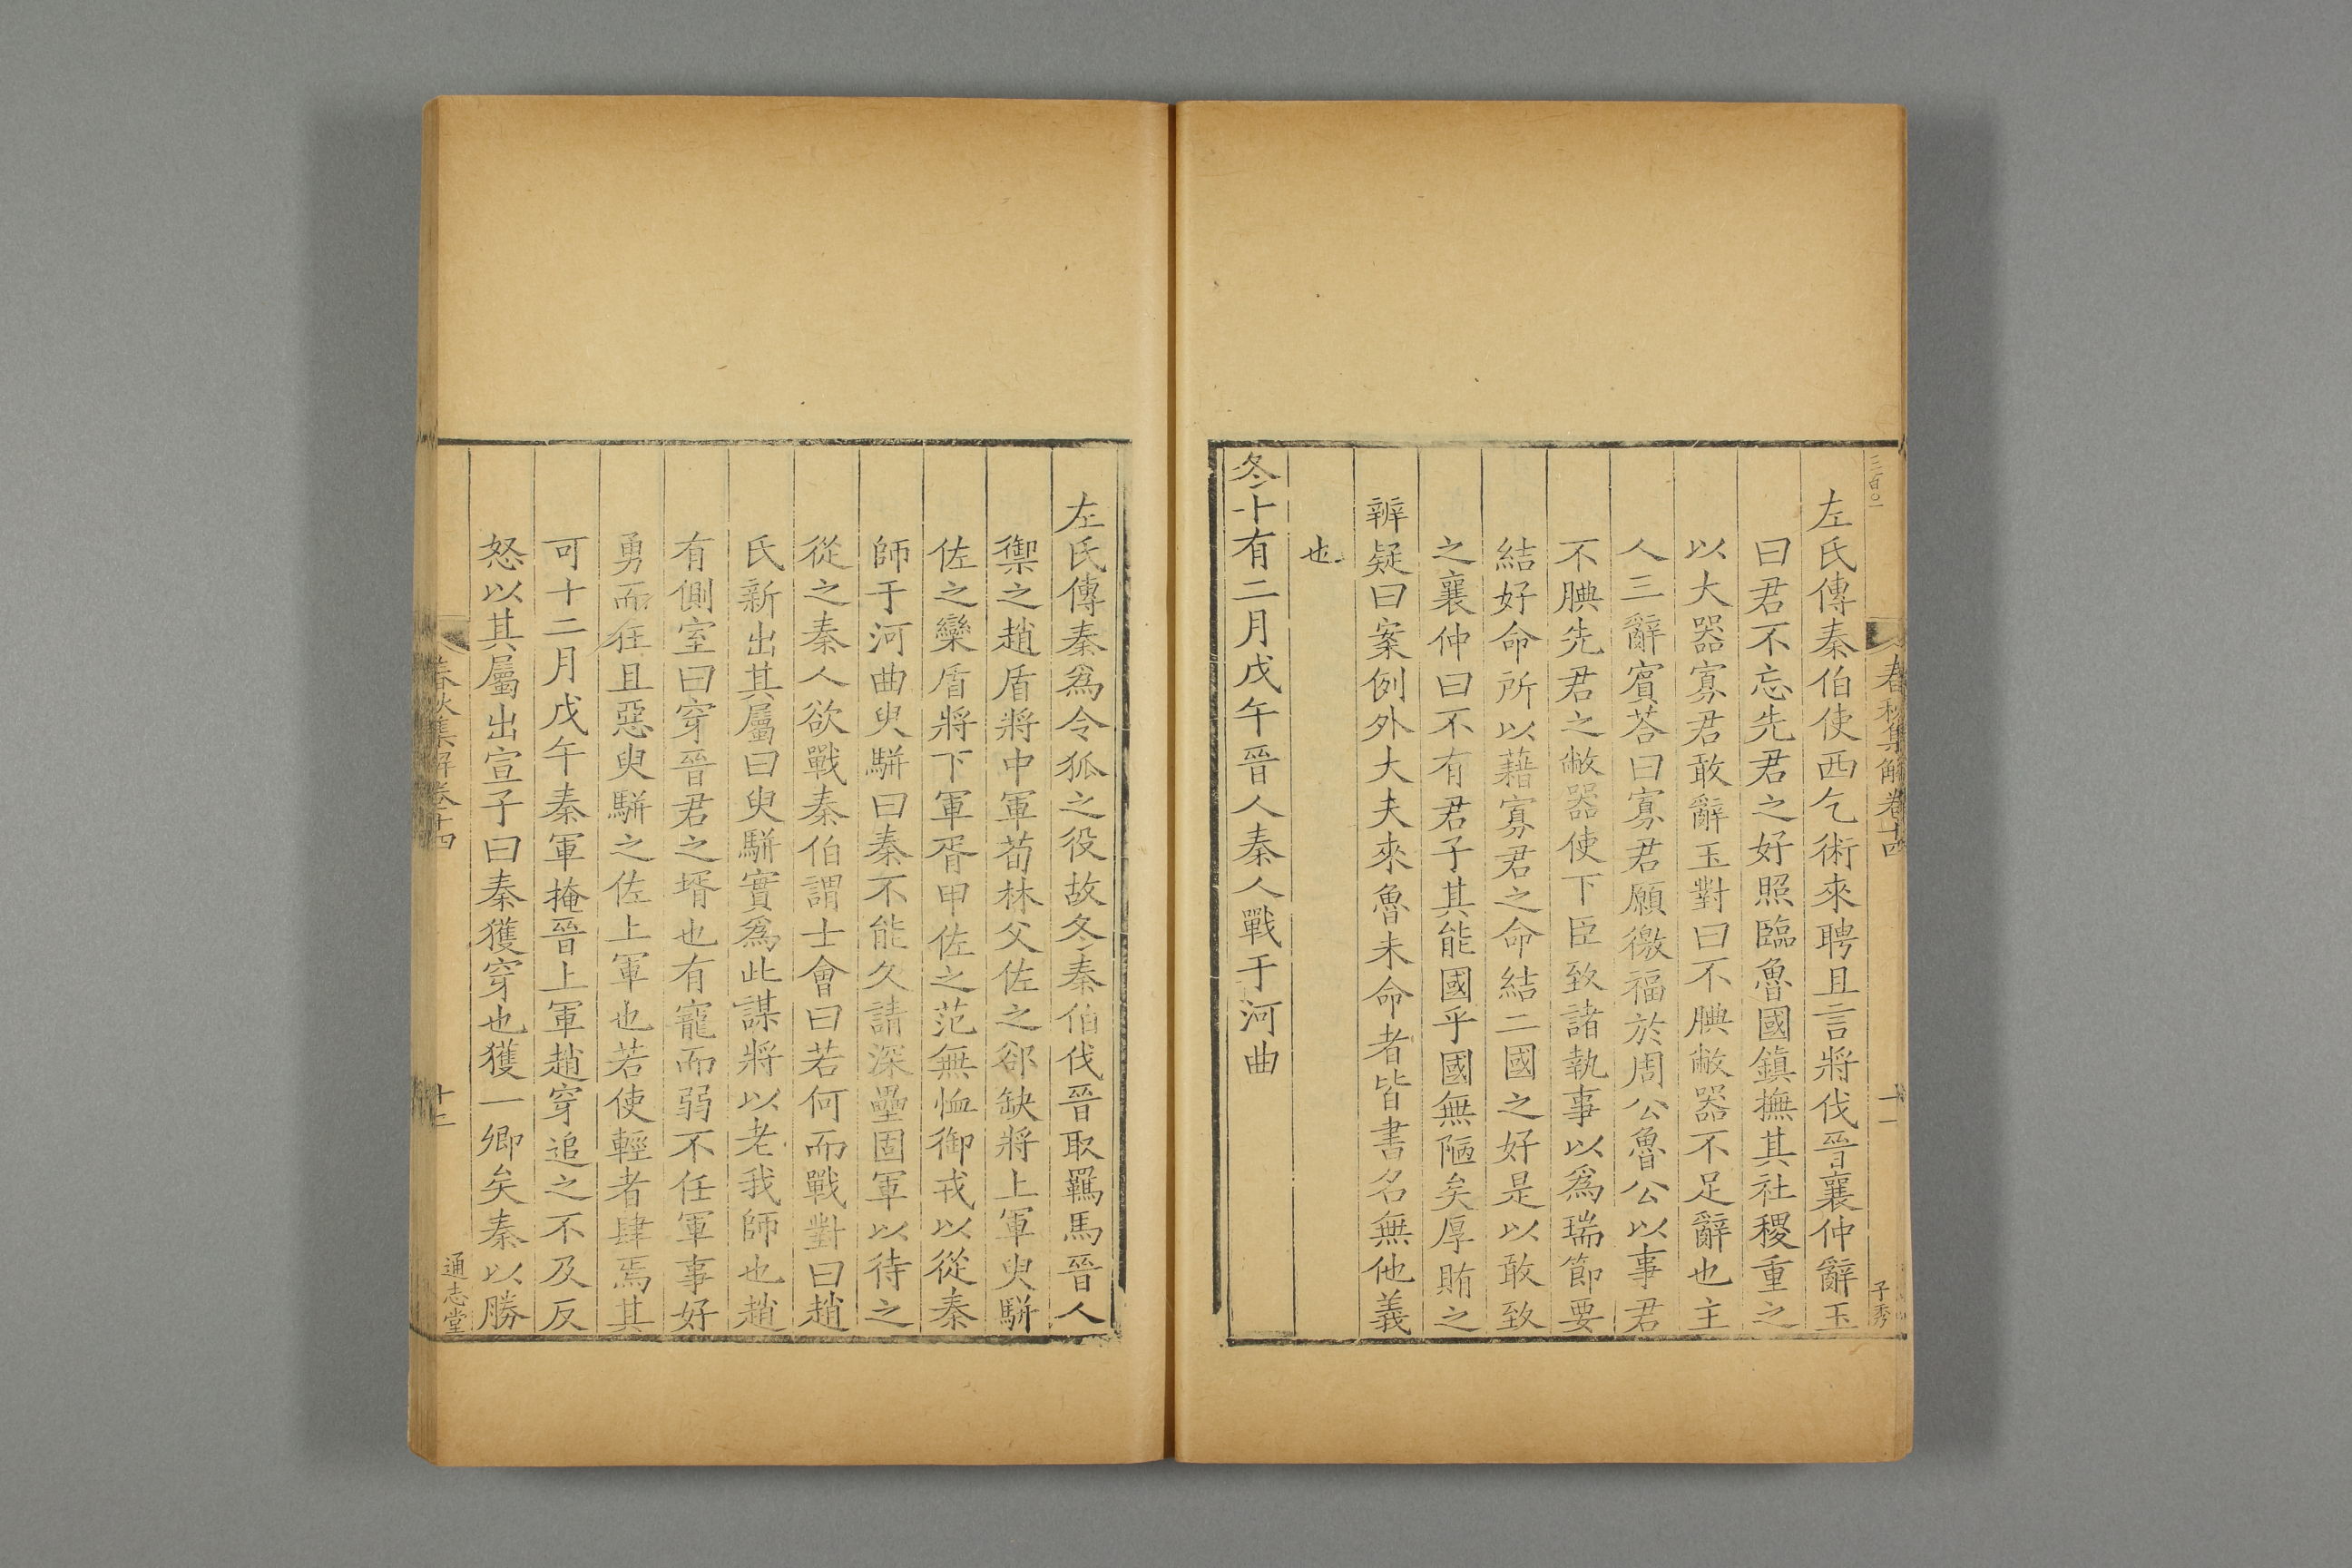 三百〇一
春秋集解卷十四
十一
子秀
左氏傳秦伯使西乞術來聘且言將伐晉襄仲辭玉
曰君不忘先君之好照臨魯國鎮撫其社稷重之
以大器寡君敢辭玉對曰不腆敝器不足辭也主
人三辭賓荅曰寡君願徼福於周公魯公以事君
不腆先君之敝器使下臣致諸執事以爲瑞節要
結好命所以藉寡君之命結二國之好是以敢致
之襄仲曰不有君子其能國乎國無陋矣厚賄之
辨疑曰案例外大夫來魯未命者皆書名無他義
也
冬十有二月戊午晉人秦人戰于河曲
左氏傳秦爲令狐之役故冬秦伯伐晉取羈馬晉人
禦之趙盾將中軍荀林父佐之郤缺將上軍臾駢
佐之欒盾將下軍胥甲佐之范無恤御戎以從秦
師于河曲臾駢曰秦不能久請深壘固軍以待之
從之秦人欲戰秦伯謂士會曰若何而戰對曰趙
氏新出其屬曰臾駢實爲此謀將以老我師也趙
有側室曰穿晉君之壻也有寵而弱不任軍事好
勇而狂且惡臾駢之佐上軍也若使輕者肆焉其
可十二月戊午秦軍掩晉上軍趙穿追之不及反
怒以其屬出宣子曰秦獲穿也獲一卿矣秦以勝
春秋集解卷十四
十二
通志堂